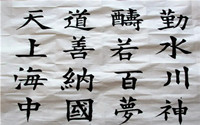 勤水川神
醻若百夢
道善納國
天上海中